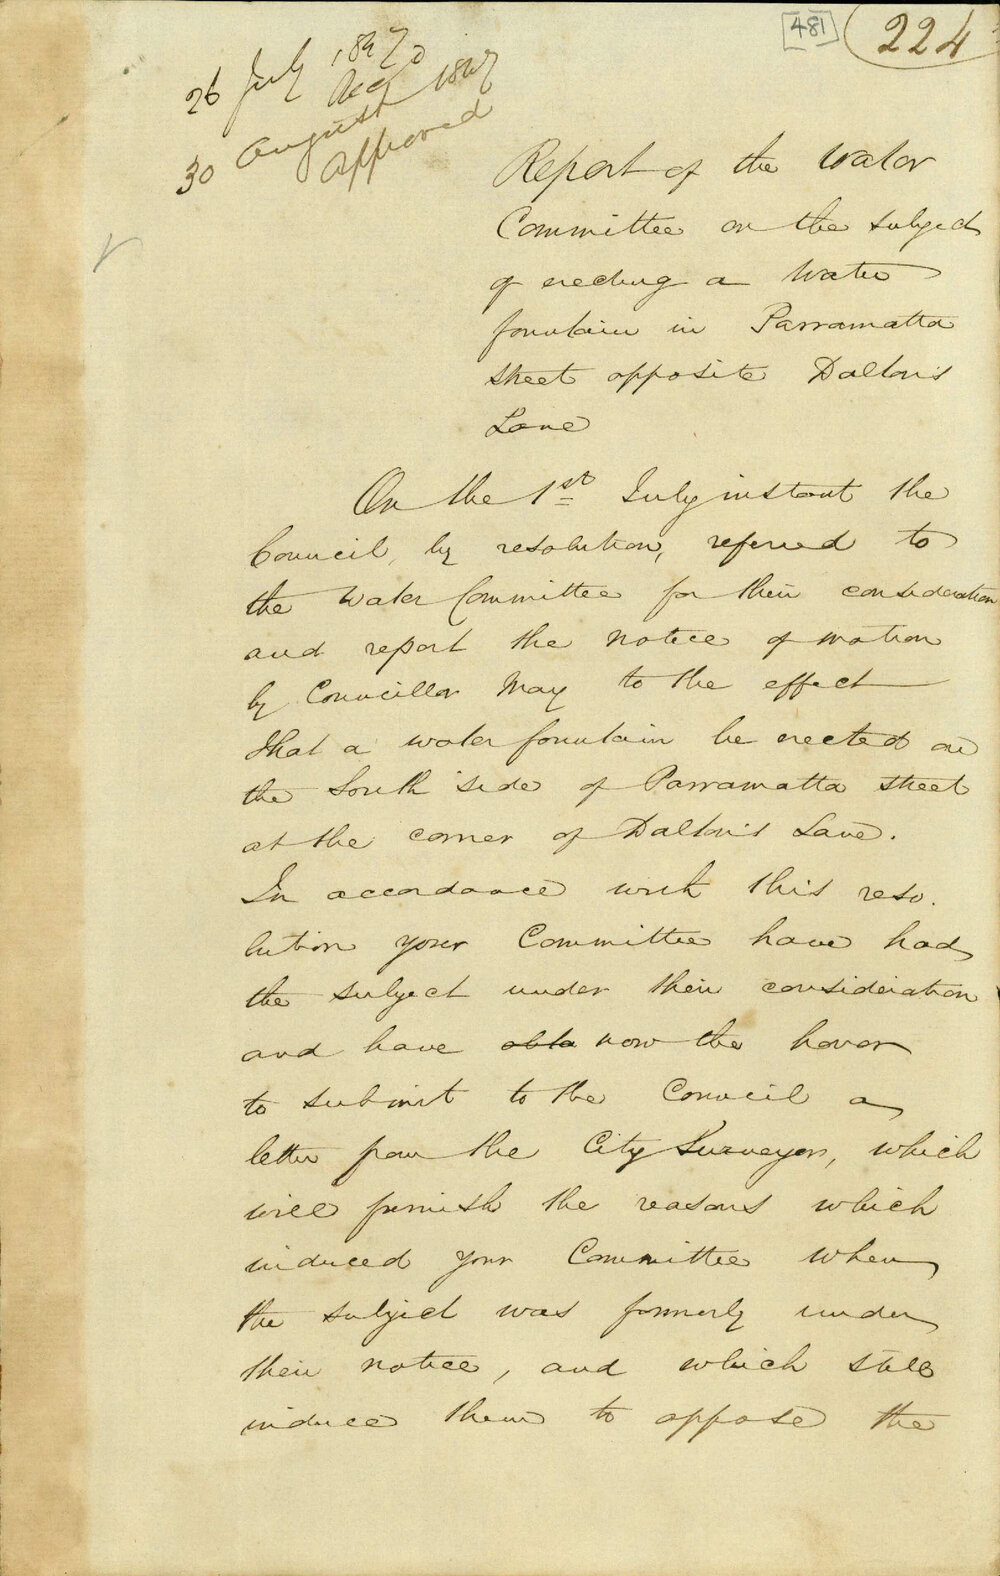 [481] 224
26 July 1847
Recd
30 August 1847
approved
Report of the Water
Committee on the subject
of erecting a Water
fountain in Parramatta
Street opposite Dalton's
Lane
On the 1st July instant the
Council, by resolution, referred to
the Water Committee for their consideration
and report the notice of motion
by Councillor May to the effect
that a water fountain be erected on
the South side of Parramatta Street
at the corner of Dalton's Lane.
In accordance with this reso.
lution your Committee have had
the subject under their consideration
and have now the honor
to submit to the Council a
letter from the City Surveyor, which
will furnish the reasons which
induced your Committee when
the subject was formerly under
their notice, and which still
induce them to oppose the